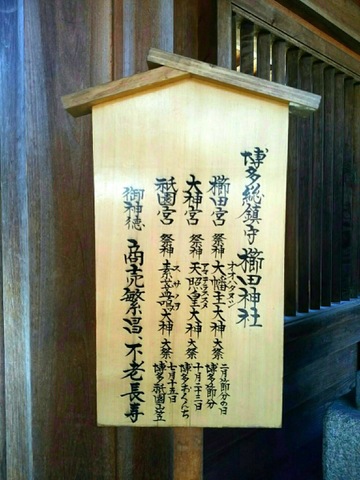 博多総鎮守 櫛田神社
櫛田宮 祭神 大幡主大神 大祭 二月節分の日 博多節分
オオハタヌシ
大神宮 祭神 天照皇大神 大祭 十月二十三日 博多おくんち
祇園宮 祭神 素盞嗚大神 大祭 七月十五日 博多祇園山笠
スサノヲ
御神徳 商売繁昌、不老長寿